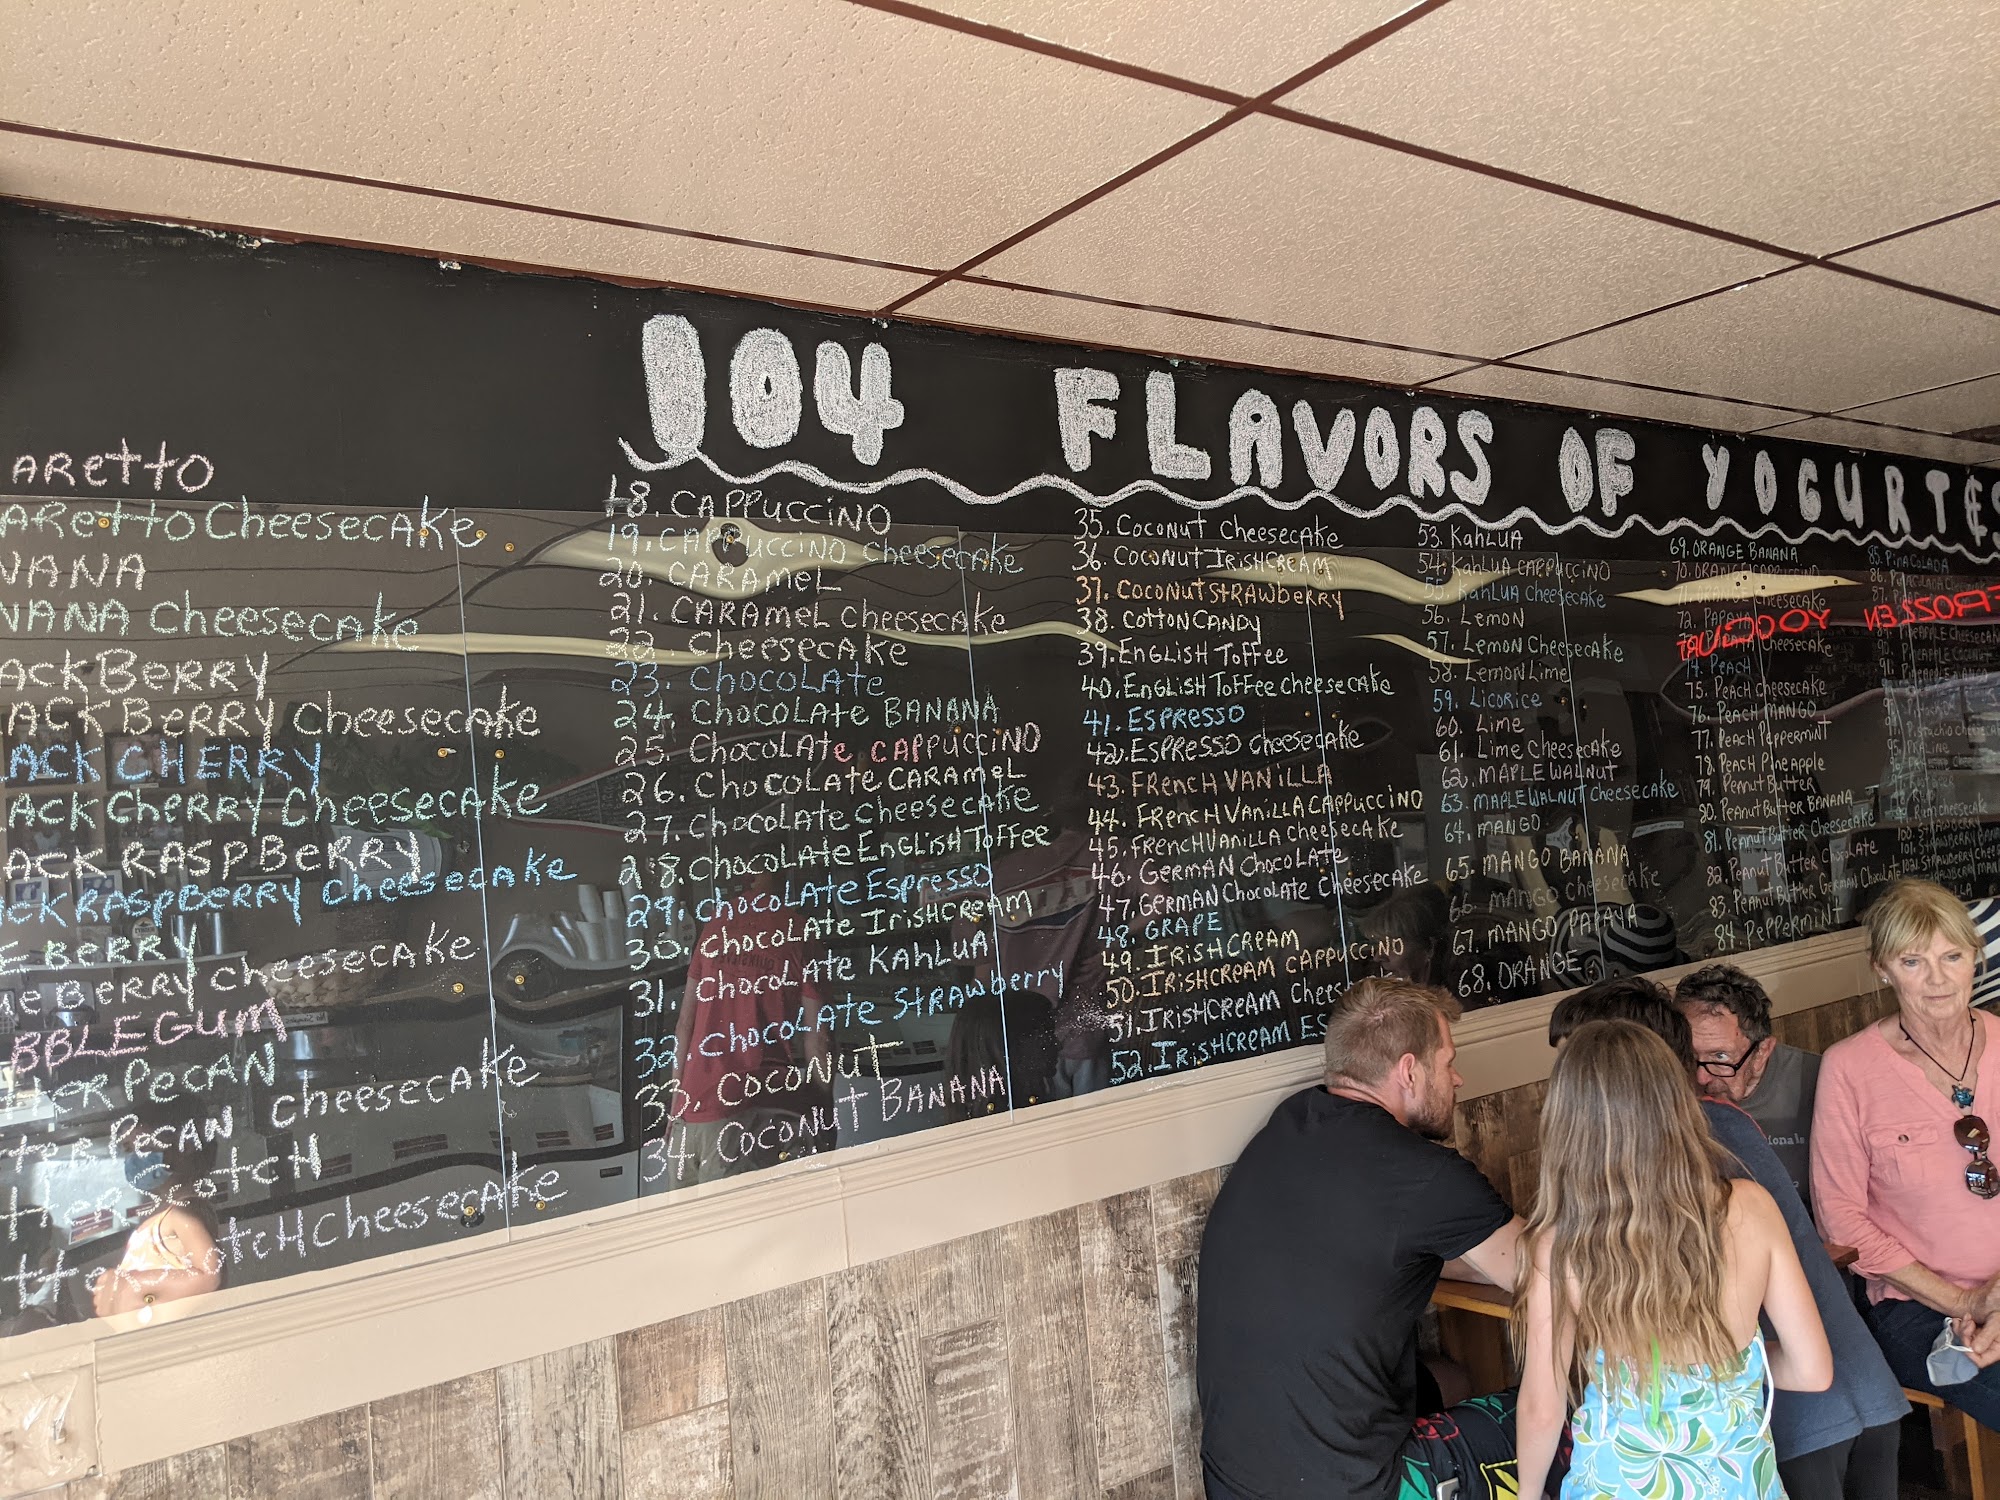 104 FLAVORS OF YOGURTES
ARETTO
ARETTO CHEESECAKE
NANA
NANA CHEESECAKE
ACKBERRY
ACKBERRY CHEESECAKE
ACK CHERRY
ACK CHERRY CHEESECAKE
ACK RASPBERRY
CKRASPBERRY CHEESECAKE
E BERRY
UE BERRY CHEESECAKE
BBLEGUM
TTER PECAN
TTER PECAN CHEESECAKE
TTERSCOTCH
TTERSCOTCH CHEESECAKE
18. CAPPUCCINO
19. CAPPUCCINO CHEESECAKE
20. CARAMEL
21. CARAMEL CHEESECAKE
22. CHEESECAKE
23. CHOCOLATE
24. CHOCOLATE BANANA
25. CHOCOLATE CAPPUCCINO
26. CHOCOLATE CARAMEL
27. CHOCOLATE CHEESECAKE
28. CHOCOLATE ENGLISH TOFFEE
29. CHOCOLATE ESPRESSO
30. CHOCOLATE IRISHCREAM
31. CHOCOLATE KAHLUA
32. CHOCOLATE STRAWBERRY
33. COCONUT
34. COCONUT BANANA
35. COCONUT CHEESECAKE
36. COCONUT IRISHCREAM
37. COCONUT STRAWBERRY
38. COTTON CANDY
39. ENGLISH TOFFEE
40. ENGLISH TOFFEE CHEESECAKE
41. ESPRESSO
42. ESPRESSO CHEESECAKE
43. FRENCH VANILLA
44. FRENCH VANILLA CAPPUCCINO
45. FRENCH VANILLA CHEESECAKE
46. GERMAN CHOCOLATE
47. GERMAN CHOCOLATE CHEESECAKE
48. GRAPE
49. IRISHCREAM
50. IRISHCREAM CAPPUCCINO
51. IRISHCREAM CHEES
52. IRISHCREAM ES
53. KAHLUA
54. KAHLUA CAPPUCCINO
55. KAHLUA CHEESECAKE
56. LEMON
57. LEMON CHEESECAKE
58. LEMON LIME
59. LICORICE
60. LIME
61. LIME CHEESECAKE
62. MAPLE WALNUT
63. MAPLE WALNUT CHEESECAKE
64. MANGO
65. MANGO BANANA
66. MANGO CHEESECAKE
67. MANGO PAPAYA
68. ORANGE
69. ORANGE BANANA
70. ORANGE CAPPUCCINO
71. ORANGE CHEESECAKE
72. PAPAYA
CHEESECAKE
74. PEACH
75. PEACH CHEESECAKE
76. PEACH MANGO
77. PEACH PEPPERMINT
78. PEACH PINEAPPLE
79. PEANUT BUTTER
80. PEANUT BUTTER BANANA
81. PEANUT BUTTER CHEESECAKE
82. PEANUT BUTTER CHOCOLATE
83. PEANUT BUTTER GERMAN CHOCOLATE
84. PEPPERMINT
85. PINA COLADA
86. PINA COLADA CHEESECAKE
PINEAPPLE CHEESECAKE
90. PINEAPPLE COCONUT
95. PRALINE
RUM CHEESECAKE
100. STRAWBERRY
101. STRAWBERRY BANANA
102. STRAWBERRY CHEESE
FROZEN YOGURT